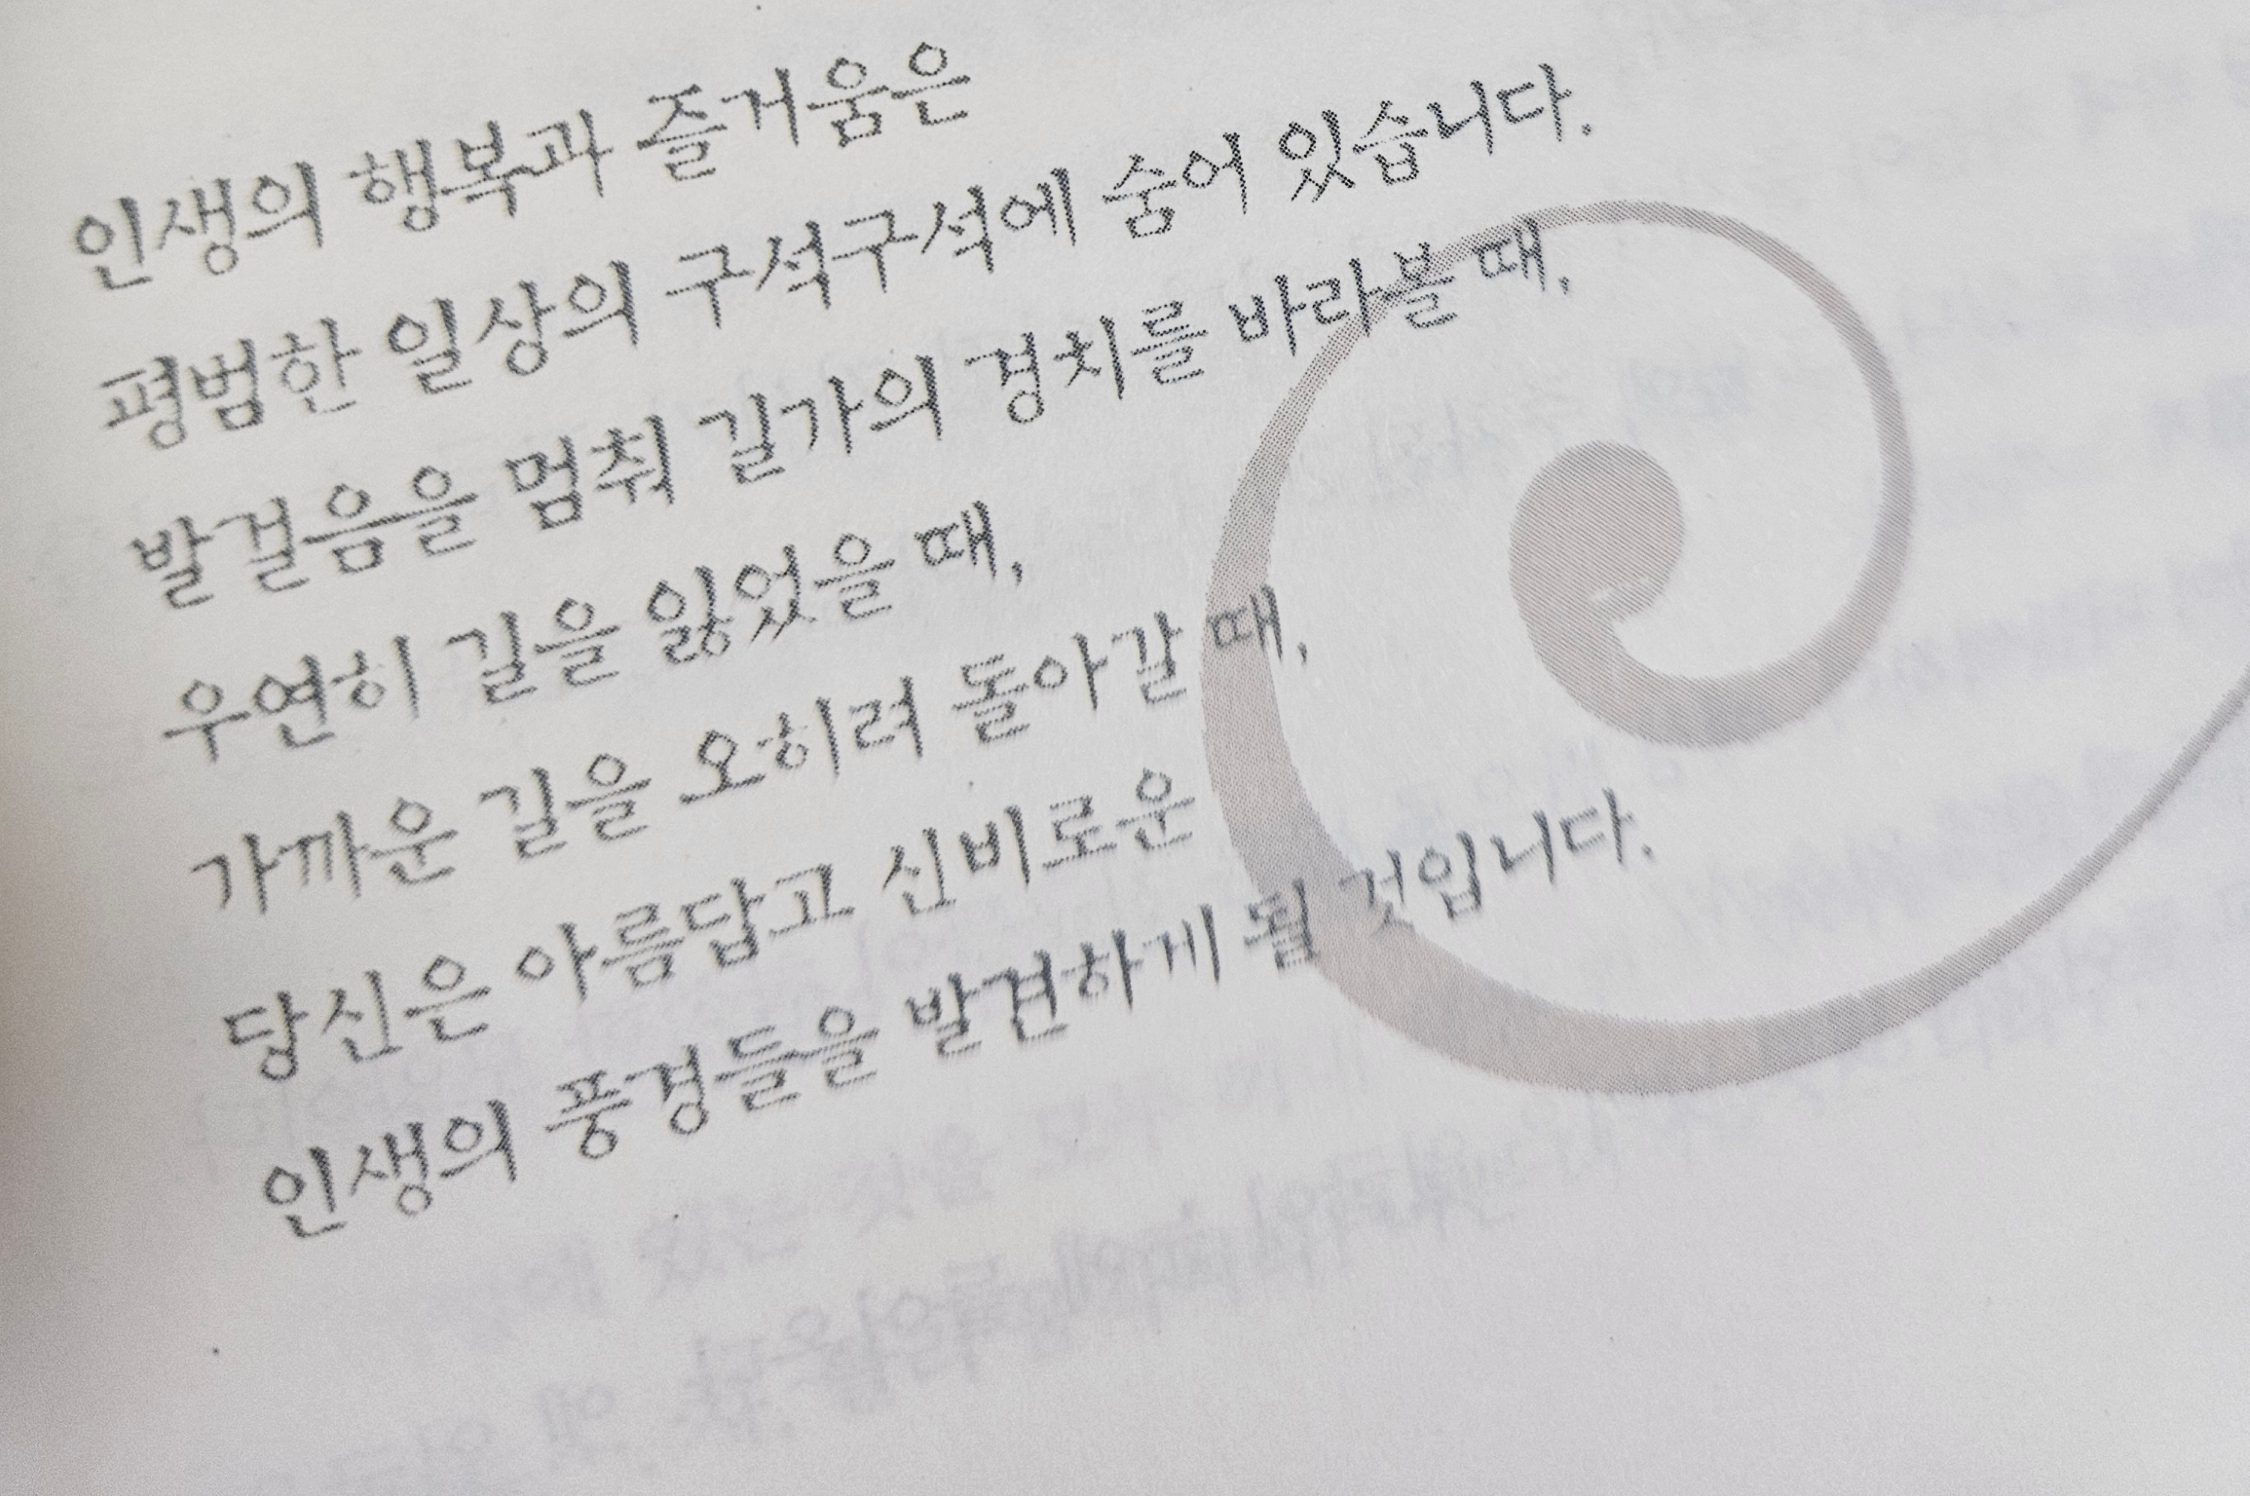 인생의 행복과 즐거움은
평범한 일상의 구석구석에 숨어 있습니다.
발걸음을 멈춰 길가의 경치를 바라볼 때,
우연히 길을 잃었을 때,
가까운 길을 오히려 돌아갈 때,
당신은 아름답고 신비로운
인생의 풍경들을 발견하게 될 것입니다.